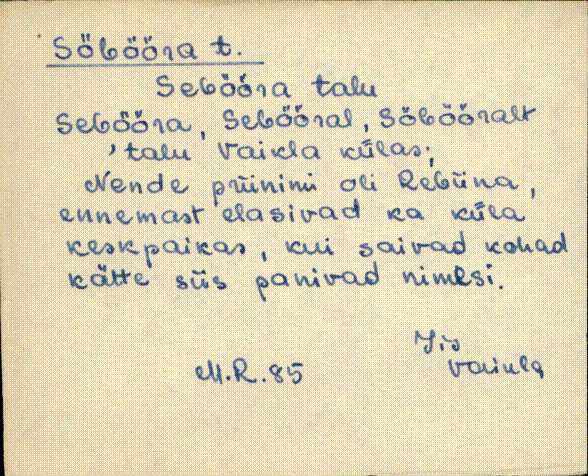 Sõbõõra t.
Sebõõra talu
Sebõõra, Sebõõral, Sõbõõralt
'talu Vaikla külas;
Nende priinimi oli Rebüna,
ennemast elasivad ka küla
keskpaikas, kui saivad kohad
kätte siis panivad nimesi.
Iis
M.R.85 Vaikla